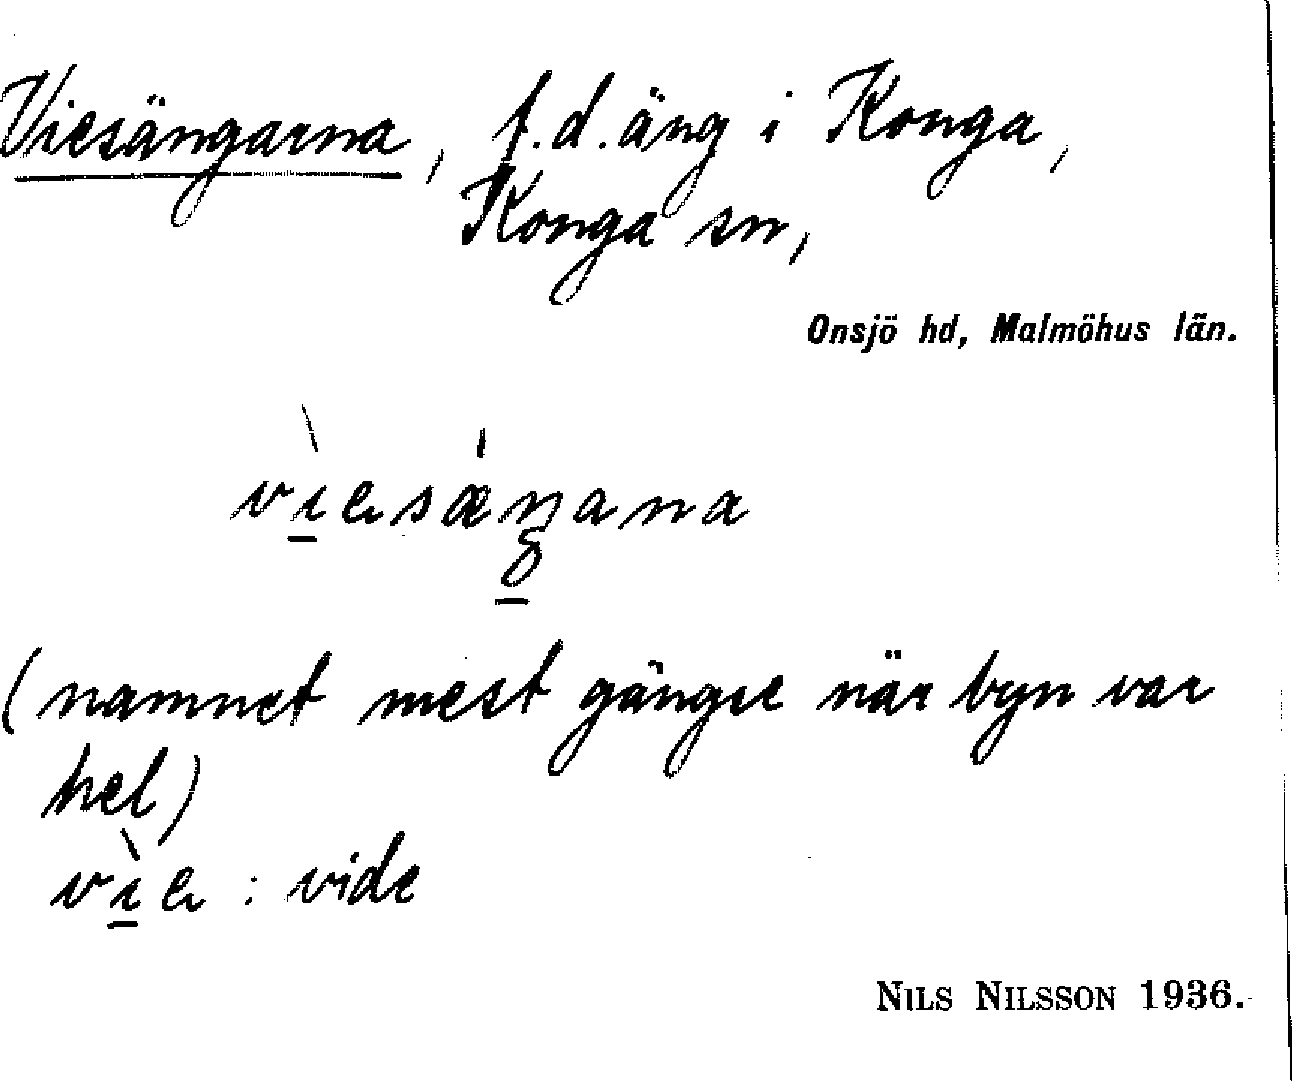 Viesängarna, f.d. äng i Konga,
Konga sn,
Onsjö hd, Malmöhus län.
vìesǽŋana
(namnet mest gängse när byn var
hel)
vìe : vide
NILS NILSSON 1936.